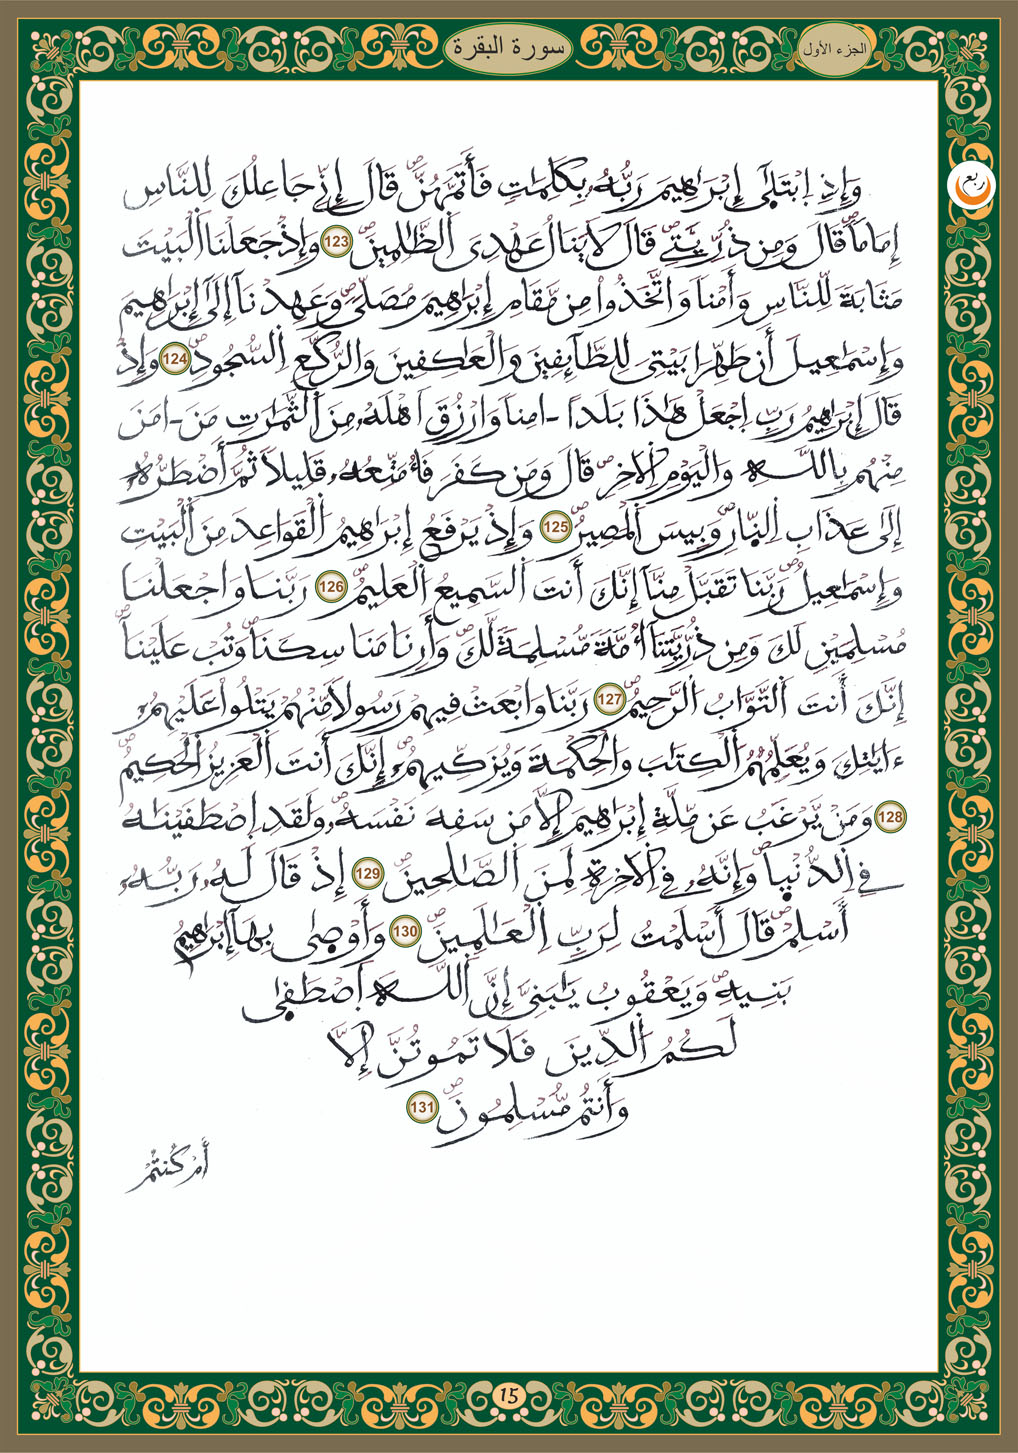 الجزء الأول
سورة البقرة
ربع
وَإِذِ اِبْتَلَىٰٓ إِبْرَٰهِيمَ رَبُّهُۥ بِكَلِمَٰتٖ فَأَتَمَّهُنَّۖ قَالَ إِنِّے جَاعِلُكَ لِلنَّاسِ
إِمَاماٗۖ قَالَ وَمِن ذُرِّيَّتِےۖ قَالَ لَا يَنَالُ عَهْدِى اَلظَّٰلِمِينَۖ 123 وَإِذْ جَعَلْنَا اَلْبَيْتَ
مَثَابَةٗ لِّلنَّاسِ وَأَمْناٗ وَاتَّخَذُواْ مِن مَّقَامِ إِبْرَٰهِيمَ مُصَلّىٗۖ وَعَهِدْنَآ إِلَىٰٓ إِبْرَٰهِيمَ
وَإِسْمَٰعِيلَ أَن طَهِّرَا بَيْتِى لِلطَّآئِفِينَ وَالْعَٰكِفِينَ وَالرُّكَّعِ اِلسُّجُودِۖ 124 وَإِذْ
قَالَ إِبْرَٰهِيمُ رَبِّ اِجْعَلْ هَٰذَا بَلَداً -امِناٗ وَارْزُقَ اَهْلَهُۥ مِنَ اَلثَّمَرَٰتِ مَنَ -امَنَ
مِنْهُم بِاللَّهِ وَالْيَوْمِ اِلَاخِرِۖ قَالَ وَمَن كَفَرَ فَأُمَتِّعُهُۥ قَلِيلاٗ ثُمَّ أَضْطَرُّهُۥٓ
إِلَىٰ عَذَابِ اِلنّ۪ارِۖ وَبِيسَ اَلْمَصِيرُۖ 125 وَإِذْ يَرْفَعُ إِبْرَٰهِيمُ اُلْقَوَاعِدَ مِنَ اَلْبَيْتِ
وَإِسْمَٰعِيلُۖ رَبَّنَا تَقَبَّلْ مِنَّآ إِنَّكَ أَنتَ اَلسَّمِيعُ اُلْعَلِيمُۖ 126 رَبَّنَا وَاجْعَلْنَا
مُسْلِمَيْنِ لَكَ وَمِن ذُرِّيَّتِنَآ أُمَّةٗ مُّسْلِمَةٗ لَّكَۖ وَأَرِنَا مَنَاسِكَنَاۖ وَتُبْ عَلَيْنَآۖ
إِنَّكَ أَنتَ اَلتَّوَّابُ اُلرَّحِيمُۖ 127 رَبَّنَا وَابْعَثْ فِيهِمْ رَسُولاٗ مِّنْهُمْ يَتْلُواْ عَلَيْهِمُۥٓ
ءَايَٰتِكَ وَيُعَلِّمُهُمُ اُلْكِتَٰبَ وَالْحِكْمَةَ وَيُزَكِّيهِمُۥٓۖ إِنَّكَ أَنتَ اَلْعَزِيزُ اُلْحَكِيمُۖ
128 وَمَنْ يَّرْغَبُ عَن مِّلَّةِ إِبْرَٰهِيمَ إِلَّا مَن سَفِهَ نَفْسَهُۥۖ وَلَقَدِ اِصْطَفَيْنَٰهُ
فِے اِلدُّنْي۪اۖ وَإِنَّهُۥ فِے اِلَاخِرَةِ لَمِنَ اَلصَّٰلِحِينَۖ 129 إِذْ قَالَ لَهُۥ رَبُّهُۥٓ
أَسْلِمْۖ قَالَ أَسْلَمْتُ لِرَبِّ اِلْعَٰلَمِينَۖ 130 وَأَوْصَىٰ بِهَآ إِبْرَٰهِيمُ
بَنِيهِۖ وَيَعْقُوبُ يَٰبَنِىَّ إِنَّ اَللَّهَ اَصْطَفَىٰ
لَكُمُ اُلدِّينَ فَلَا تَمُوتُنَّ إِلَّا
وَأَنتُم مُّسْلِمُونَۖ 131
أَمْ كُنتُمْ
15